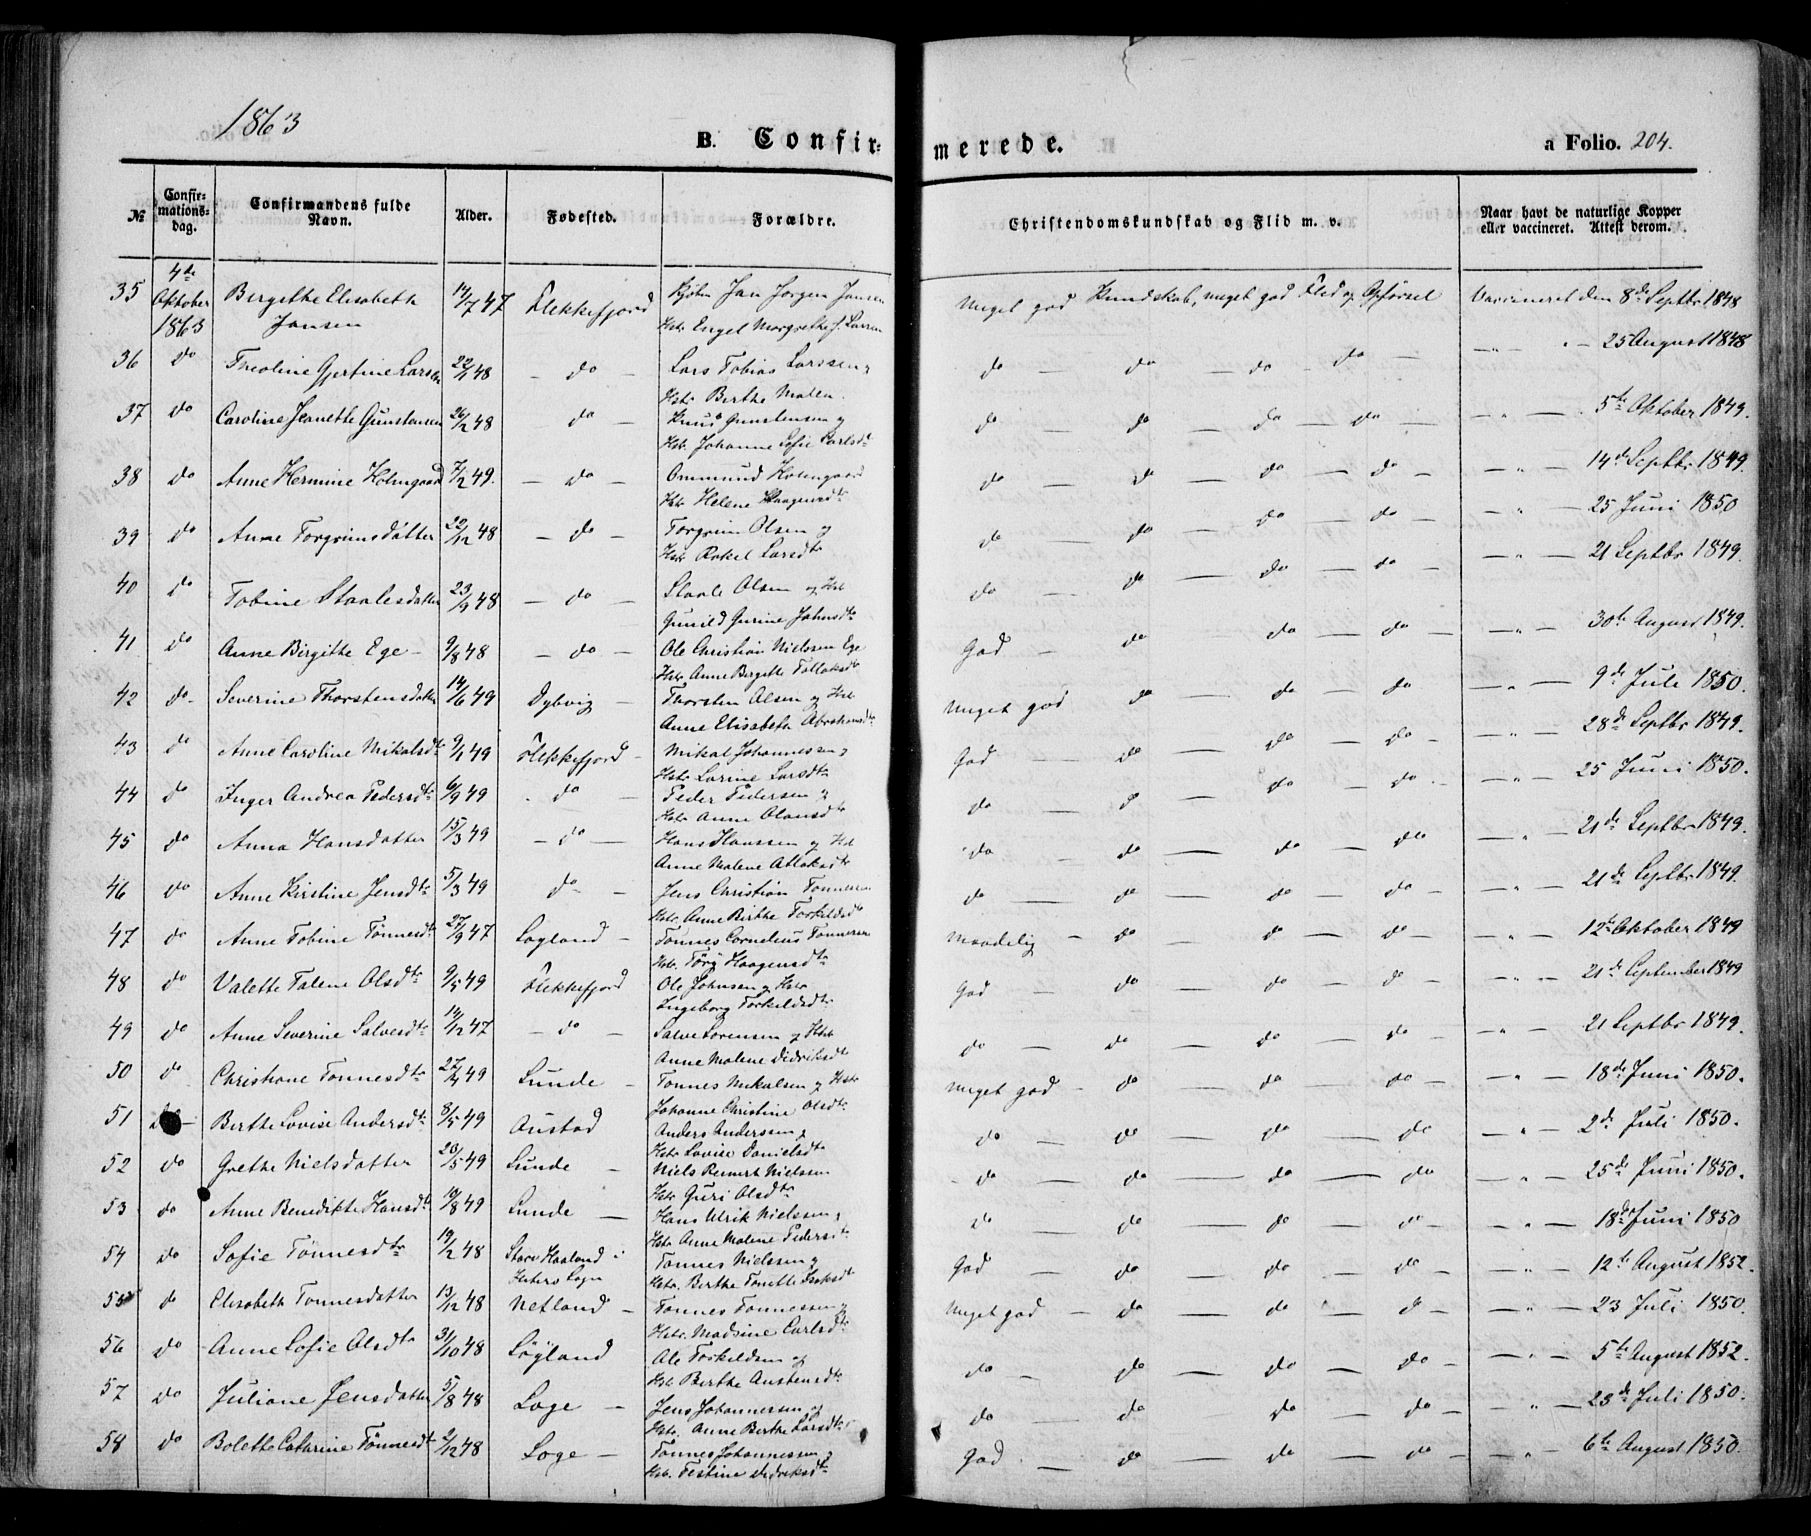 1863
B. Confir- merede. a Folio. 204.
№ Confir-mations-dag. Confirmandens fulde Navn. Alder. Fødested. Forældre. Christendomskundskab og Flid m. v. Naar havt de naturlige Kopper eller vaccineret. Attest derom.
35 4de Oktober 1863 Birgithe Elisabeth Jansen 14/7 47 Flekkefjord Kjøbm Jan Jørgen Jansen Hstr Engel Margrethe f. Larsen Meget god Kundskab, meget god Flid og Opførsel Vaccineret den 8de Septbr 1848
36 do Theoline Gjertine Larsen 22/1 48 - do - Lars Tobias Larssen og Hstr Berthe Malen. do do - do - do - -"- "- 25 August 1848
37 do Caroline Jeanette Gunstensen 26/2 48 do Knud Gunstensen og Hstr. Johanne Sofie Carlsdtr do - do - do - do - -"- 5te Oktober 1849.
38 do Anne Hermine Holmgaard 7/2 49. - do - Ommund Holmgaard Hstr Helene Haagensdtr do - do - do - do - -"- 14de Septbr 1849.
39 do Anne Torgrimsdatter 22/12 48 - do - Torgrim Olsen og Hstr Rakel Larsdtr do - do - do - do - -"- 25 Juni 1850
40 do Tobine Staalesdatter 23/9 48 - do - Staale Olsen og Hstr Gunild Gurine Johnsdtr do - do - do - do -"- 21 Septbr 1849.
41 do Anne Birgithe Ege - 9/8 48 - do - Ole Christian Nielssen Ege Hstr Anne Birgithe Tollaksdtr God do do - do - -"- 30te August 1849.
42 do. Severine Thorstensdatter 14/6 49 Dybvig - Thorsten Olsen og Hst Anne Elisabeth Abrahamsdtr Meget god do - do - do -"- 9de Juli 1850.
43 do Anne Caroline Mikalsdtr 9/1 49 Flekkefjord - Mikal Johannessen og Hstr Larine Larsdtr God - do - do - do - -"- 28de Septbr 1849.
44 do Inger Andrea Pedersdtr 6/9 49 do - Peder Pedersen og Hstr Anne Olausdtr do - do - do do. -"- 25 Juni 1850.
45 do Anna Hansdatter 15/3 49 - do - Hans Hanssen og Hst Anne Malene Atlaksdtr do do - do - do -"- 21de Septbr 1849.
46 do Anne Kirstine Jensdtr 5/3 49 do - Jens Christian Tønnesen Hstr. Anne Berthe Torkildsdtr do - do - do - do - -"- 21de Septbr 1849.
47 do Anne Tobine Tønnesdtr 27/9 47 Logland - Tønnes Cornelius Tønnesen Hstr. Tørg Haagensdtr Maadelig - do - do - do - -"- 12te Oktober 1849
48 do Valette Talene Olsdtr 9/5 49 Flekkefjord Ole Johnsen og Hstr Ingeborg Torkildsdtr God - do - do - do -"- 21de September 1849
49 do Anne Severine Salvesdtr 14/12 47 - do - Salve Sørensen og Hstr Anne Malene Didriksdtr do - do - do - do - -"- 21 Septbr 1849.
50 do Christiane Tønnesdtr 27/4 49 Lunde - Tønnes Mikalsen og Hstr Johanne Christine Olsdtr Meget god - do - do do - -"- 18de Juni 1850.
51 do - Berthe Lovise Andersdtr. 8/5 49 Austad Anders Anderssen og Hstr Lovise Danielsdtr do - do - do - do -"- 2de Juli 1850.
52 do Grethe Nielsdatter 20/5 49 Lunde - Niels Reinert Nielsen Hstr Guri Olsdtr do - do - do - do -"- 25de Juni 1850.
53 do Anne Benedikte Hansdtr 10/8 49 Lunde - Hans Ulrik Nielssen og Hstr Anne Malene Pedersdtr do - do - do - do -"- 18de Juni 1850
54 do Sofie Tønnesdtr 19/2 48 Store Haaland i Hiters Sogn Tønnes Nielssen og Hstr. Berthe Tonette Isaksdtr God - do - do - do -"- 12te August 1852.
55 do Elisabeth Tønnesdatter 13/12 48 Netland - Tønnes Tønnessen og Hstr. Madsine Carlsdtr Meget god - do - do - do - -"- 23 Juli 1850.
56 do Anne Sofie Olsdtr 31/10 48 Løgland Ole Torkildsen og Hst Berthe Austensdtr do - do - do - do - -"- 5te August 1852.
57 do Juliane Jensdatter 5/8 48 Loge - Jens Johannessen og Hstr. Anne Berthe Larsdtr do - do - do - do - -"- 23de Juli 1850.
58 do Bolette Cathrine Tønnesdtr 2/12 48 Loge - Tønnes Johannessen og Hstr. Testine Didriksdtr God - do - do - do - -"- 6te August 1850.